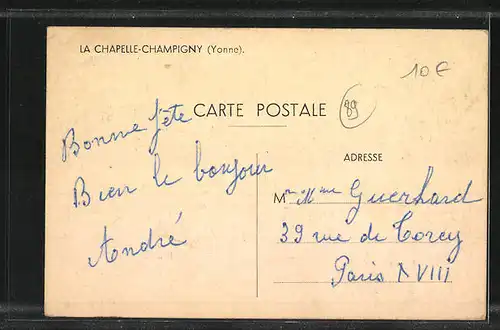 LA CHAPELLE-CHAMPIGNY (Yonne).
10 €
89
CARTE POSTALE
Bonne fête
Bien le bonjour
André
ADRESSE
Mr Mme Guerhard
39 rue de Torcy
Paris XVIII